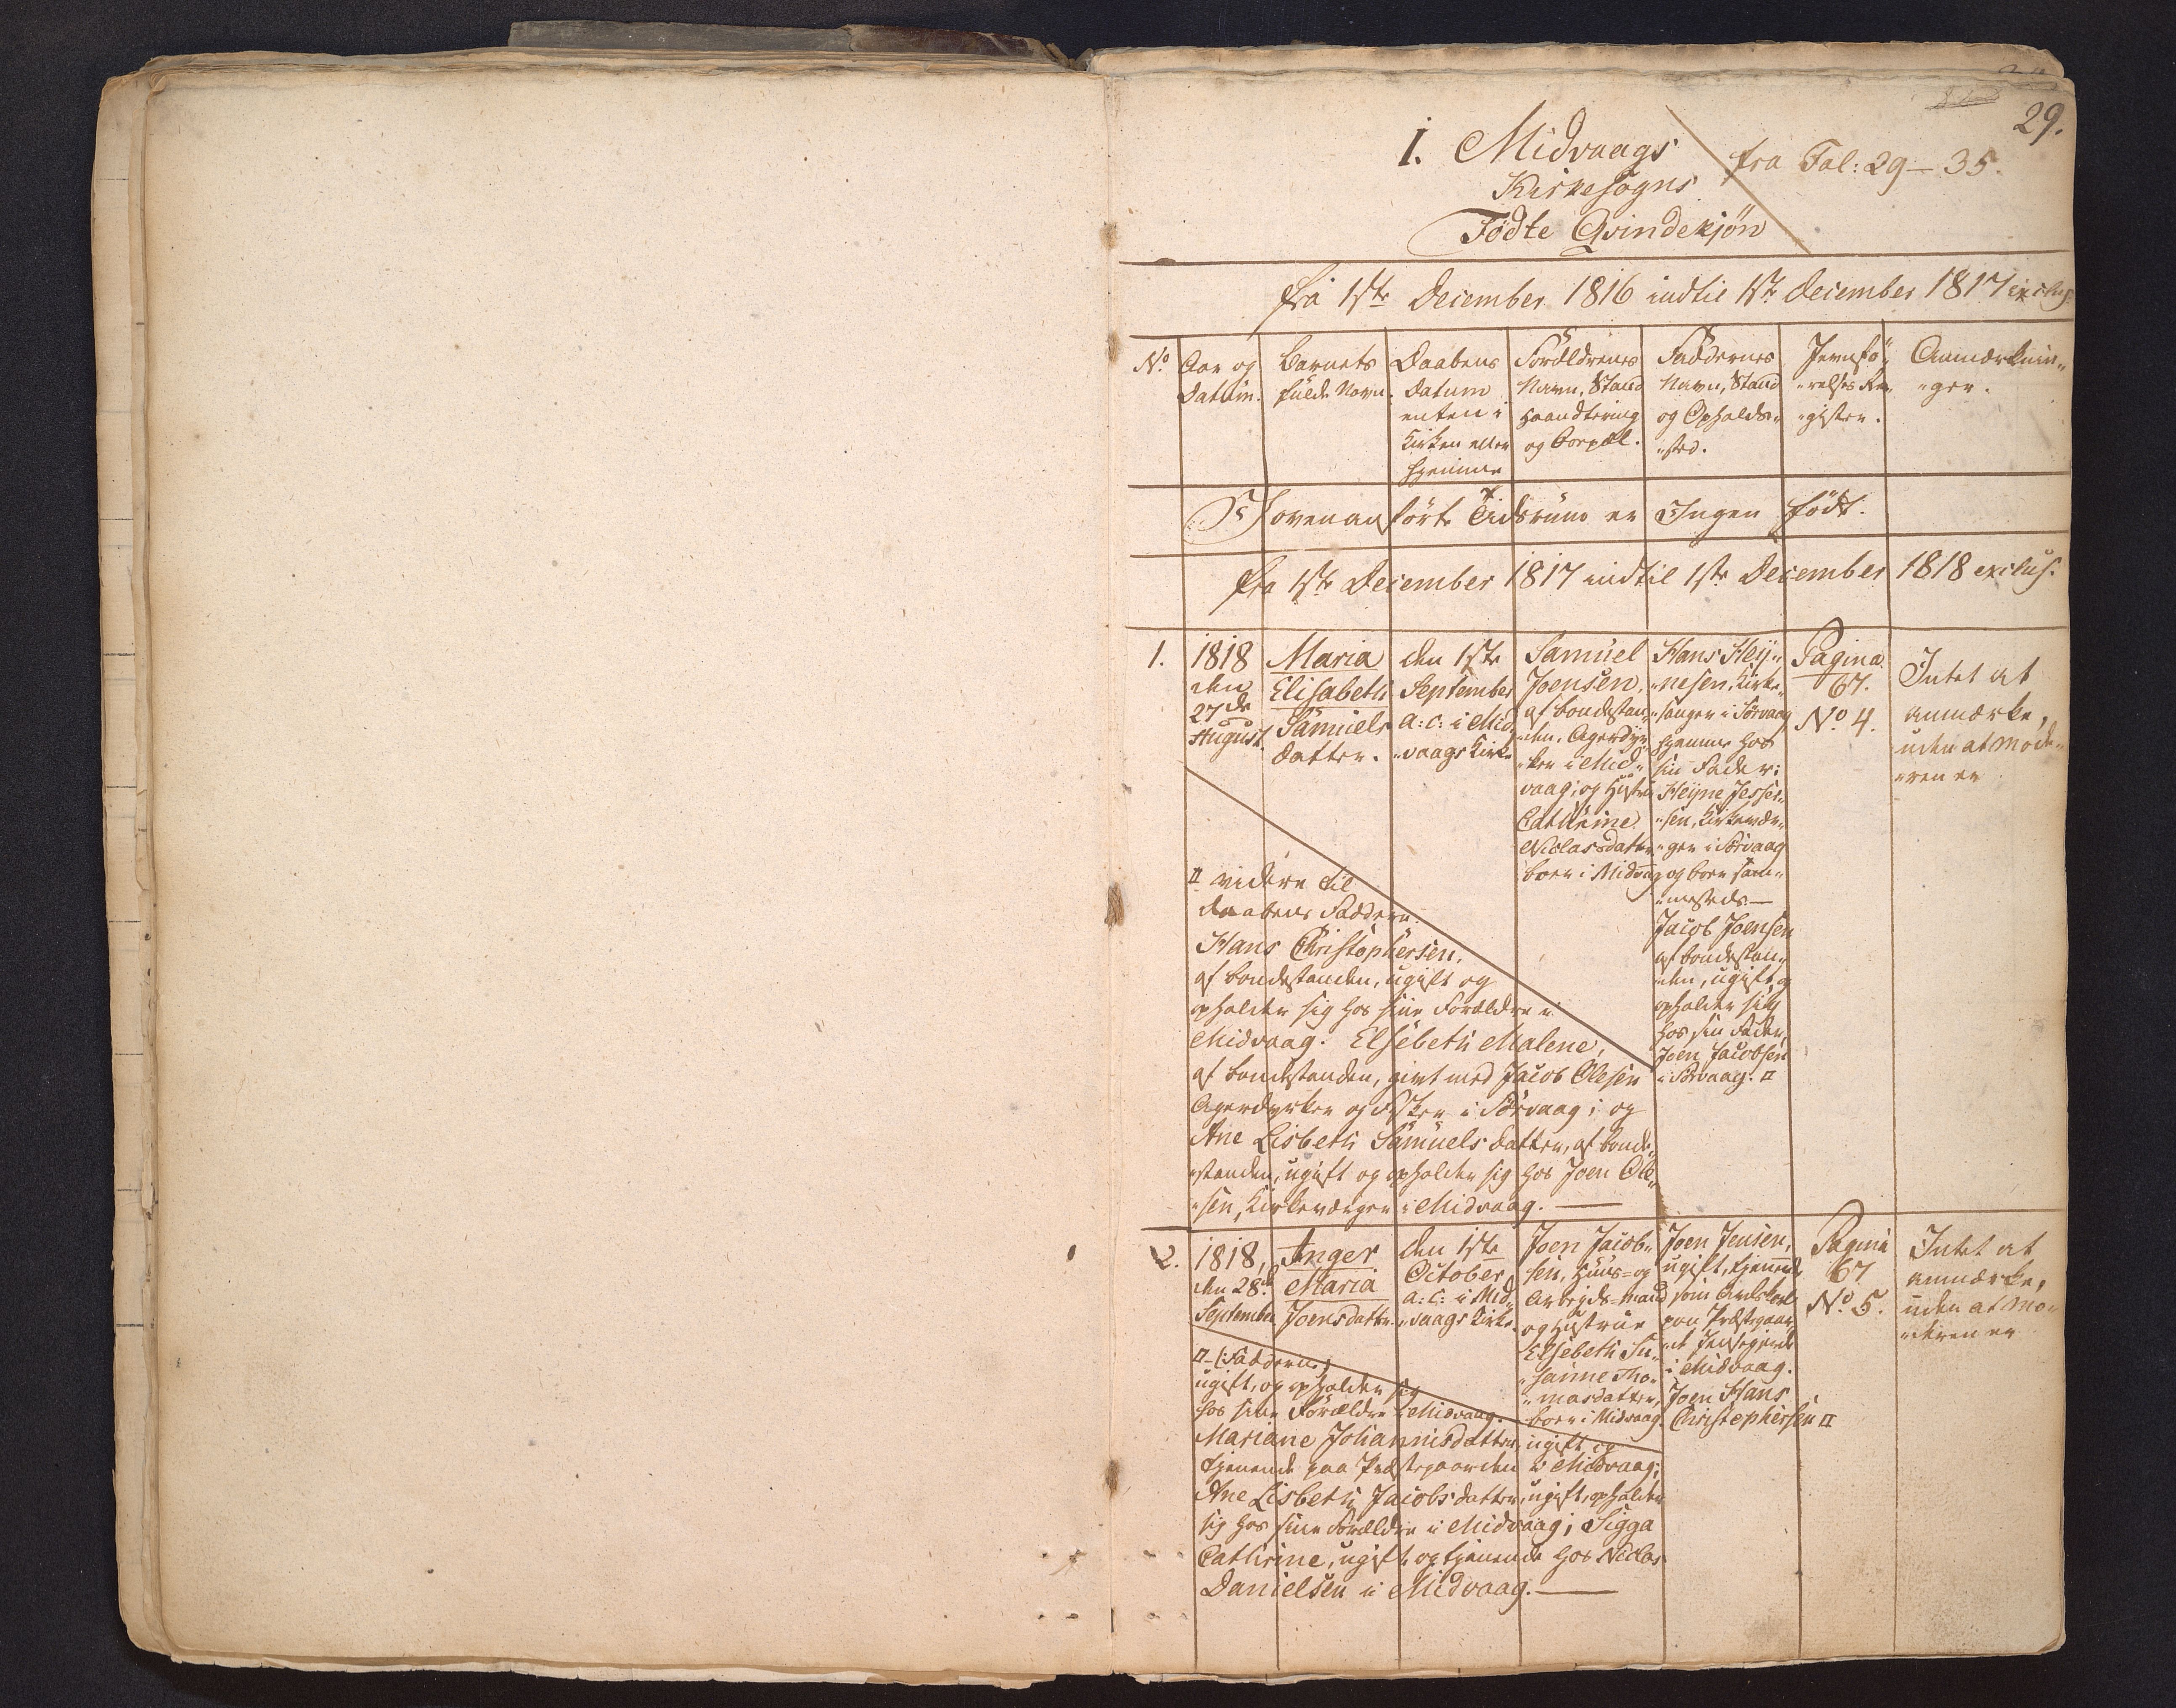 29.
I. Midvaags
Kirkesogns
Fødte Qvindekjøn
fra Fol: 29-35.
fra 1ste December 1816 indtil 1ste December 1817 exclus.
No.
Aar og
Datum.
Barnets
fulde Navn.
Daabens
Datum
enten i
Kirken eller
hjemme
Forældrenes
Navn, Stand
Haandtering
og Boepæl.
Faddernes
Navn, Stand
og Opholds„
„sted.
Jevnfø„
„relses Re„
„gister.
Anmærknin„
„ger.
I ovenanførte Tidsrum er Ingen født.
fra 1ste December 1817 indtil 1ste December 1818 exclus.
1.
1818
den
27de
August.
Maria
Elisabeth
Samuels
datter.
den 1ste
September
a: c: i Mid„
„vaags Kirke
Samuel
Joensen,
af Bondestan„
„den, Agerdyr„
„ker i Mid„
vaag; og Hustru
Cathrine
Niclasdatter
boer i Midvaag
Hans Heij„
„nesen, Kirke„
„sanger i Sørvaag
hjemme hos
sin Fader:
Heijne Jesper„
„sen, Kirkevær„
„ger i Sørvaag
og boer sam„
„mesteds.—
Jacob Joensen
af Bondestan„
„den, ugift og
opholder sig
hos sin Fader,
Joen Jacobsen
i Sørvaag. ¤
Pagina
67.
No. 4.
Intet at
anmærke,
uden at Mode„
„ren er
¤ videre til
Daabens Faddere:
Hans Christophersen,
af Bondestanden, ugift og
opholder sig hos sine Forældre i
Midvaag. Elsebeth Malene,
af Bondestanden, givt med Jacob Olesen
Agerdyrker og Fisker i Sørvaag; og
Ane Lisbeth Samuelsdatter, af Bonde„
„standen, ugift og opholder sig hos Joen Ole„
„sen, Kirkeværger i Midvaag.—
2.
1818,
den 28de
September
Inger
Maria
Joensdatter.
den 1ste
October
a: c: i Mid„
„vaags Kirke.
Joen Jacob„
sen, Huus= og
Arbejds=mand
og Hustrue
Elsebeth Su„
„sanne Tho„
„masdatter,
boer i Midvaag.
Joen Jensen,
ugift, tjenende
som Avlskarl
paa Præstegaar„
i Midvaag.
Joen Hans
Christophersen ¤
Pagina
67
No. 5.
Intet at
anmærke,
uden at Mo„
„deren er
¤-(Faddere)
ugift, og opholder sig
hos sine Forældre i Midvaag.
Mariane Johannisdatter, ugift og
tjenende paa Præstegaarden i Midvaag;
Ane Lisbeth Jacobsdatter, ugift, opholder
sig hos sine Forældre i Midvaag; Sigga
Cathrine, ugift og tjenende hos Niclas
Danielsen i Midvaag.—